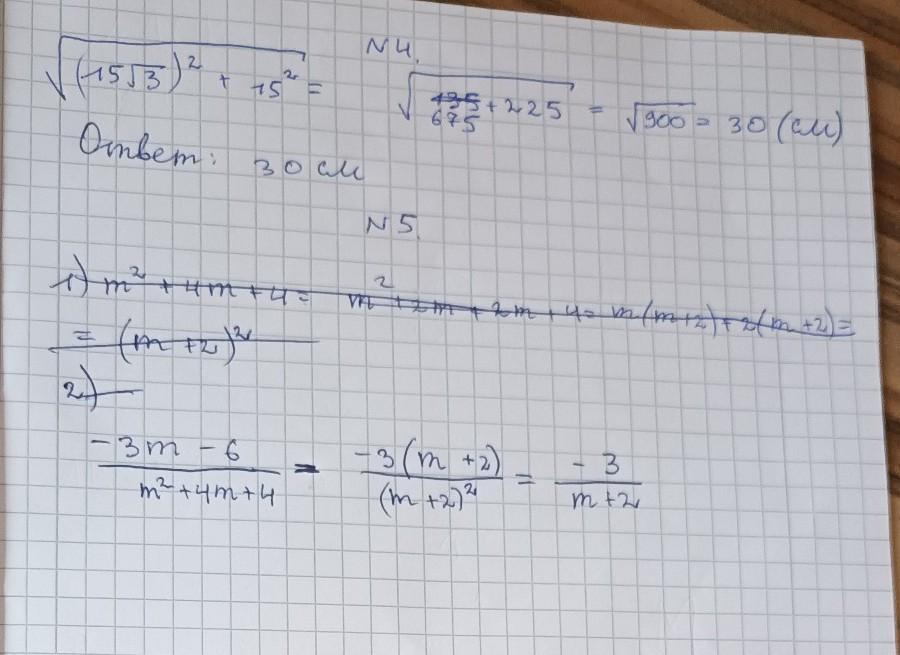 N4.
√((15√3)² + 15²) = √(~~135~~ 675 + 225) = √900 = 30 (см)
Ответ: 30 см
N5.
~~1) m² + 4m + 4 = m² + 2m + 2m + 4 = m(m+2) + 2(m+2) =~~
~~= (m+2)²~~
~~2)~~
(-3m - 6)/(m² + 4m + 4) = (-3(m+2))/((m+2)²) = (-3)/(m+2)